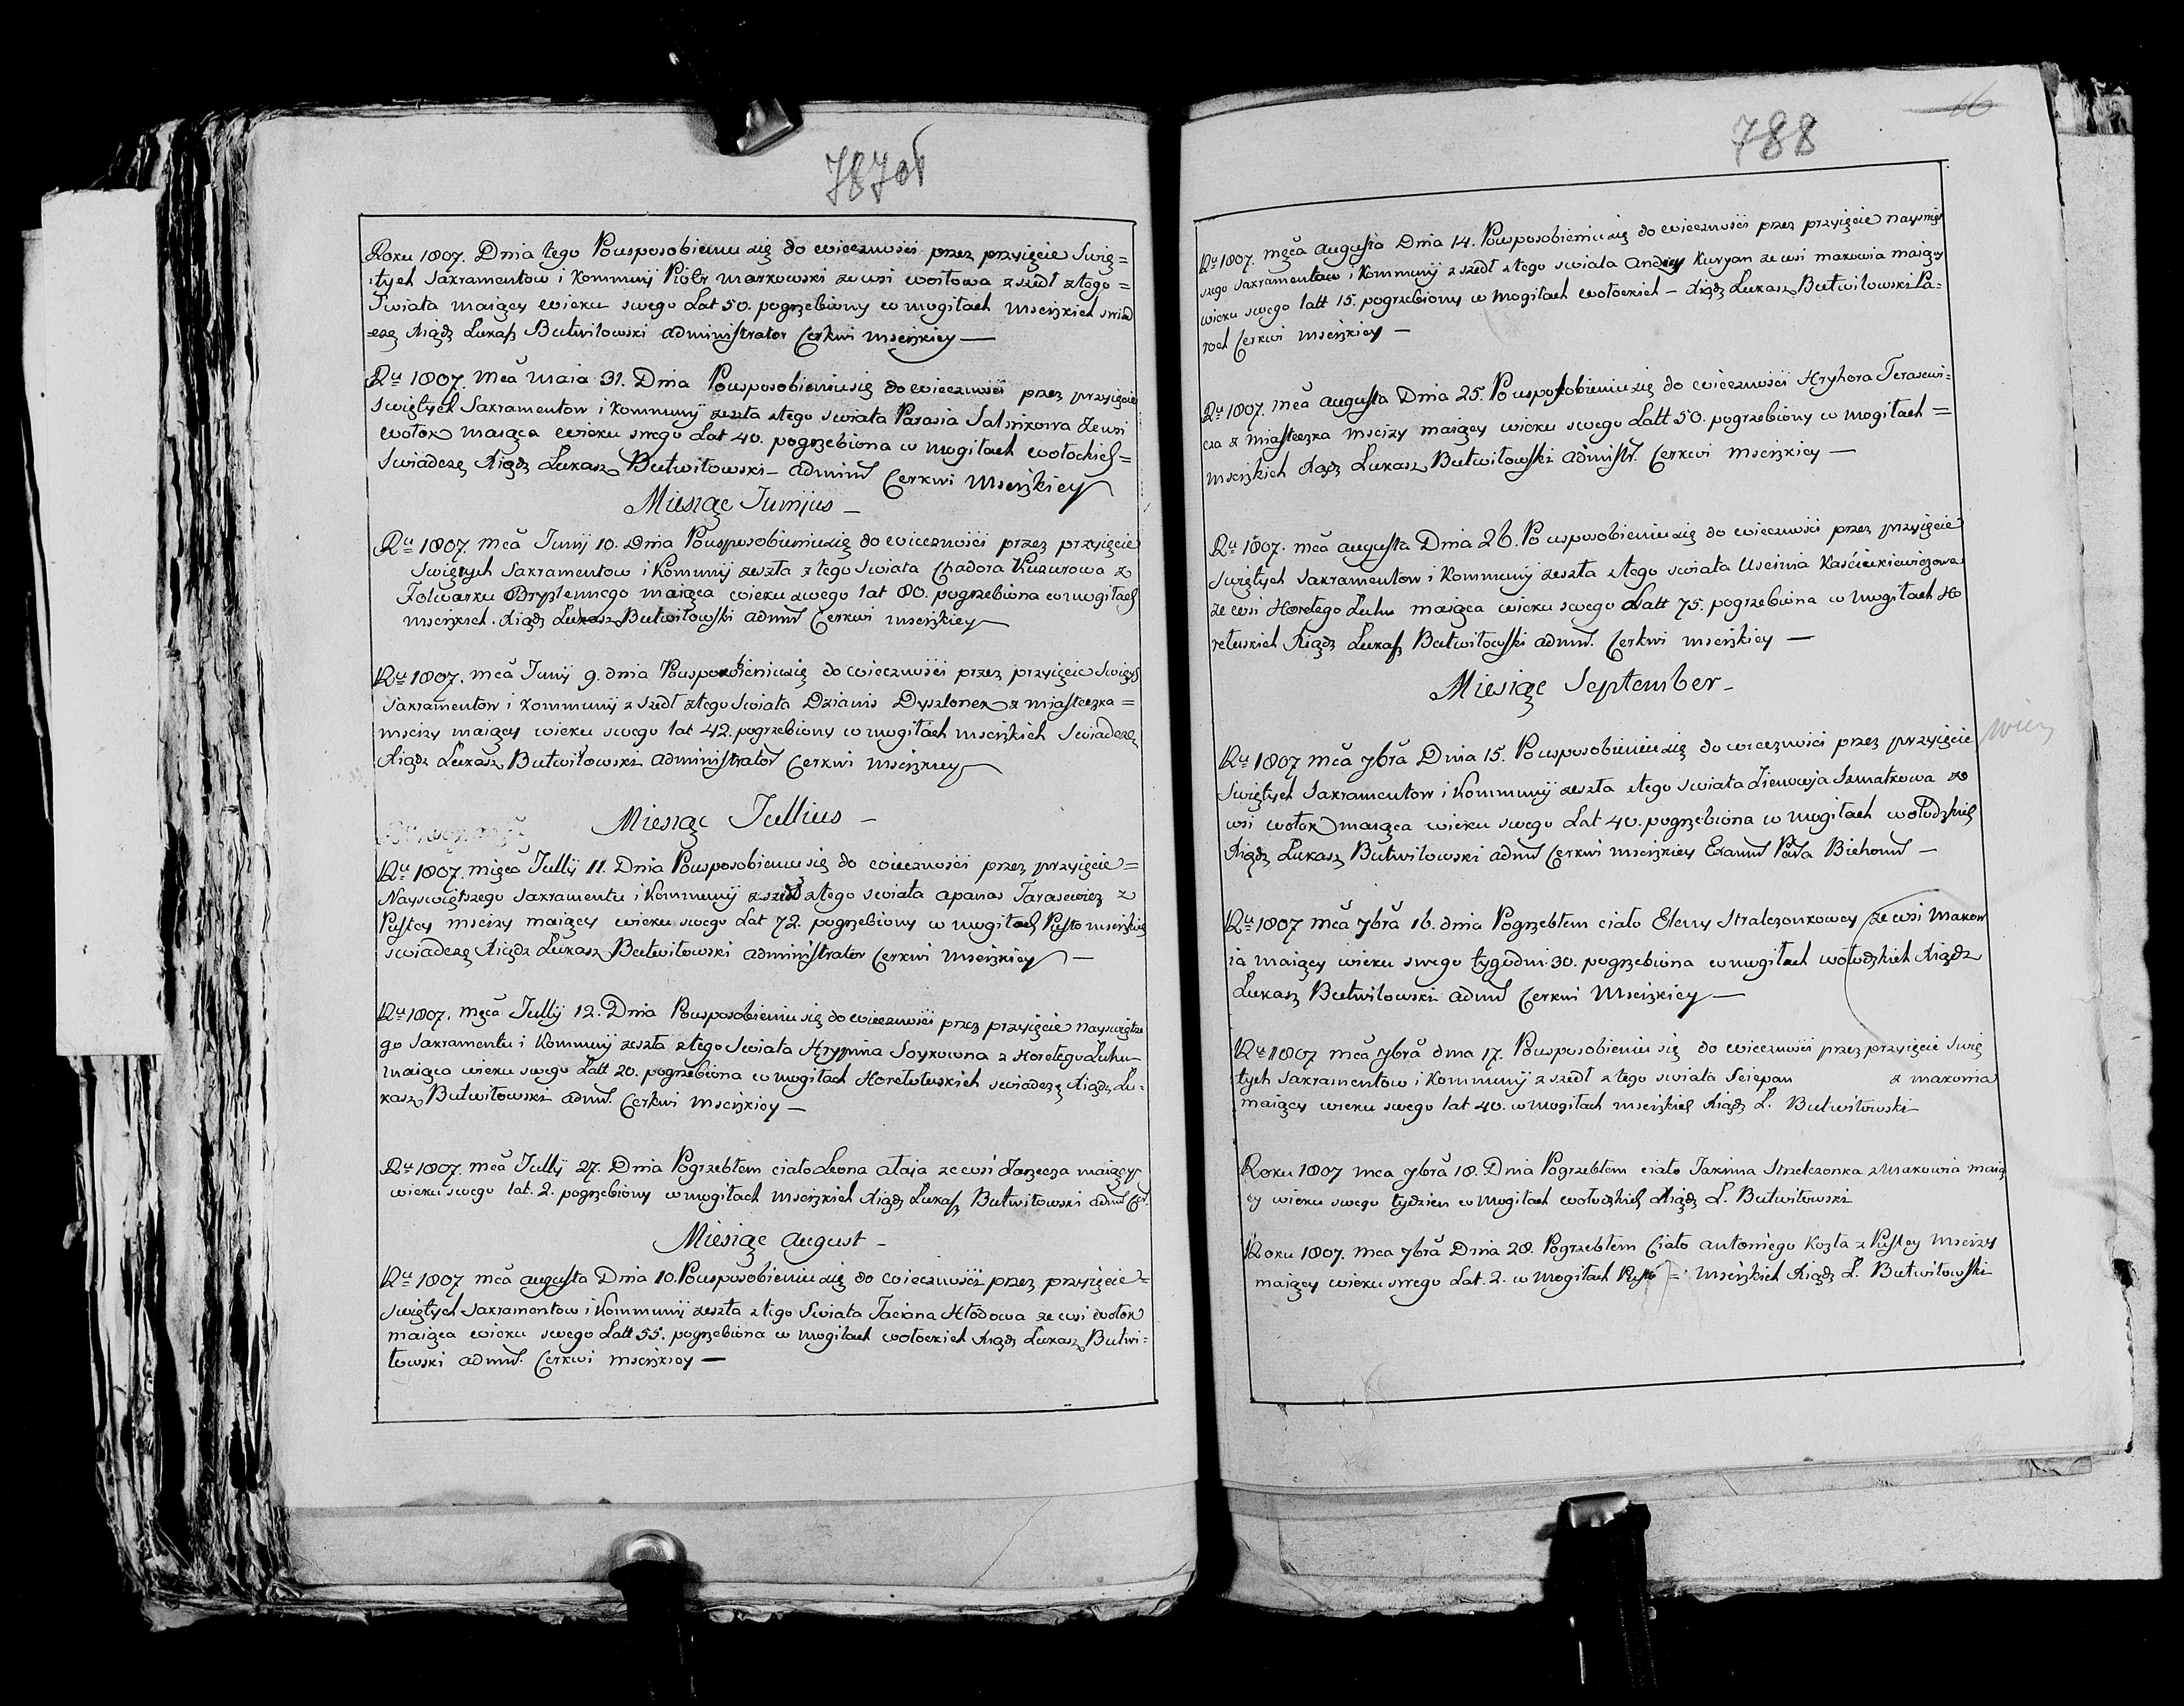 787об
Roku 1807. Dnia tego Pousposobieniu się do wieczności przez przyięcie Swię=
tych Sakramentow i Kommuij Piotr Markowski ze wsi Wostowa zszedł ztego=
Swiata maiący wieku swego Lat 50. pogrzebiony w mogiłach Mscizkich swiad
czę Xiądz Lukasz Butwiłowski administrator Cerkwi Mscizkiey —
Ru 1807. Mca Maia 31. Dnia Pousposobieniu się do wieczności przez przyięcie
Swiętych Sakramentow i Kommuij zeszła ztego swiata Parasia Salnikowa ze wsi
Wołok maiąca wieku swego Lat 40. pogrzebiona w mogiłach Wołockich=
Swiadczę Xiądz Lukasz Butwiłowski — admin Cerkwi Mscizkiey
Miesiąc Junijus —
Ru 1807. Mca Junij 10. Dnia Pousposobieniu się do wieczności przez przyięcie
Swiętych Sakramentow i Komunij zeszła z tego Swiata Chadora Kuzurowa z
Folwarku maiąca wieku swego lat 80. pogrzebiona w mogiłach
Mscizkich. Xiądz Lukasz Butwiłowski admin Cerkwi Mscizkiey —
Ru 1807. Mca Juny 9. dnia Pousposobieniu się do wieczności przez przyięcie Swiętych
Sakramentow i Kommunij zszedł ztego Swiata Dzianis Dyszlonek z miasteczka=
Mscizy maiący wieku swego lat 42. pogrzebiony w mogiłach Mscizkich Swiadczę
Xiądz Lukasz Butwiłowski administrator Cerkwi Mscizkiey
Miesiąc Jullius —
Ru 1807. Mięca Jullij 11. Dnia Pousposobieniu się do wieczności przez przyięcie=
Nayswiętszego Sakramentu i Kommunij zszedł ztego swiata Apanas Tarasewicz z
Pustey Mscizy maiący wieku swego Lat 72. pogrzebiony w mogiłach Pusto Mscizkich
swiadczę Xiądz Lukasz Butwiłowski administrator Cerkwi Mscizkiey —
Ru 1807. Męca Jullij 12. Dnia Pousposobieniu się do wieczności przez przyięcie nayswiętsze
go Sakramentu i Kommunij zeszła ztego Swiata Hrypina Soykowna z Horełego Luhu
maiąca wieku swego Latt 20. pogrzebiona w mogiłach Horełoluskich swiadczę Xiądz Lu=
kasz Butwiłowski admin. Cerkwi Mscizkiey —
Ru 1807. Mca Jullij 27. Dnia Pogrzebłem ciało Leona Ataja ze wsi Zarzecza maiący
wieku swego lat. 2. pogrzebiony w mogiłach Mscizkich Xiądz Lukasz Butwiłowski admin
Miesiąc August —
Ru 1807 Mca Augusta Dnia 10. Pousposobieniu się do wieczności przez przyięcie=
Swiętych Sakramentow i Kommunij zeszła ztego Swiata Taciana Hłodowa ze wsi Wołok
maiąca wieku swego Latt 55. pogrzebiona w mogiłach Wołockich Xiądz Lukasz Butwi=
łowski admin. Cerkwi Mscizkiey —
16
788
Ru 1807. Męca Augusta Dnia 14. Pousposobieniu się do wieczności przez przyięcie nayswięt
szego Sakramentow i Kommunij zszedł ztego swiata Andrey Kuryan ze wsi Makowia maiący
wieku swego latt 15. pogrzebiony w mogiłach Wołockich — Xiądz Lukasz Butwiłowski Pa=
roch Cerkwi Mscizkiey —
Ru 1807. Mca Augusta Dnia 25. Pousposobieniu się do wieczności Hryhora Terasewi=
cza z Miasteczka Mscizy maiący wieku swego Latt 50. pogrzebiony w mogiłach=
Mscizkich Xiądz Lukasz Butwiłowski administr. Cerkwi Mscizkiey —
Ru 1807. Mca Augusta Dnia 26. Pousposobieniu się do wieczności przez przyięcie
Swiętych Sakramentow i Kommunij zeszła ztego swiata Uscinia Kaścickiewiczowa
ze wsi Horełego Luhu maiąca wieku swego Latt 75. pogrzebiona w mogiłach Ho
rełuskich Xiądz Lukasz Butwiłowski admin. Cerkwi Mscizkiey —
Miesiąc September —
Ru 1807 Mca 7bra Dnia 15. Pousposobieniu się do wieczności przez przyięcie
Swiętych Sakramentow i Kommunij zeszła ztego swiata Zienowja Szmatkowa ze
wsi Wołok maiąca wieku swego Lat 40. pogrzebiona w mogiłach wołodzkich
Xiądz Lukasz Butwiłowski admin Cerkwi Mscizkiey
Ru 1807 Mca 7bra 16. dnia Pogrzebłem ciało Eleny Stralczonkowey ze wsi Makow
ia maiący wieku swego tygodni 30. pogrzebiona w mogiłach wołodzkich Xiądz
Lukasz Butwiłowski admin Cerkwi Mscizkiey —
Ru 1807 Mca 7bra dnia 17. Pousposobieniu się do wieczności przez przyięcie Swię
tych Sakramentow i Kommunij zszedł ztego swiata Sciepan z Makowia
maiący wieku swego lat 40. w mogiłach Mscizkich Xiądz L. Butwiłowski
Roku 1807 Mca 7bra 18. Dnia Pogrzebłem ciało Jakima Strzelczonka z Makowia maią
cy wieku swego tydzien w mogiłach wołodzkich Xiądz L. Butwiłowski
Roku 1807. Mca 7bra Dnia 28. Pogrzebłem Ciało Antoniego Kozła z Pustey Mscizy
maiący wieku swego Lat. 2. w mogiłach Pusto=Mscizkich Xiądz L. Butwiłowski